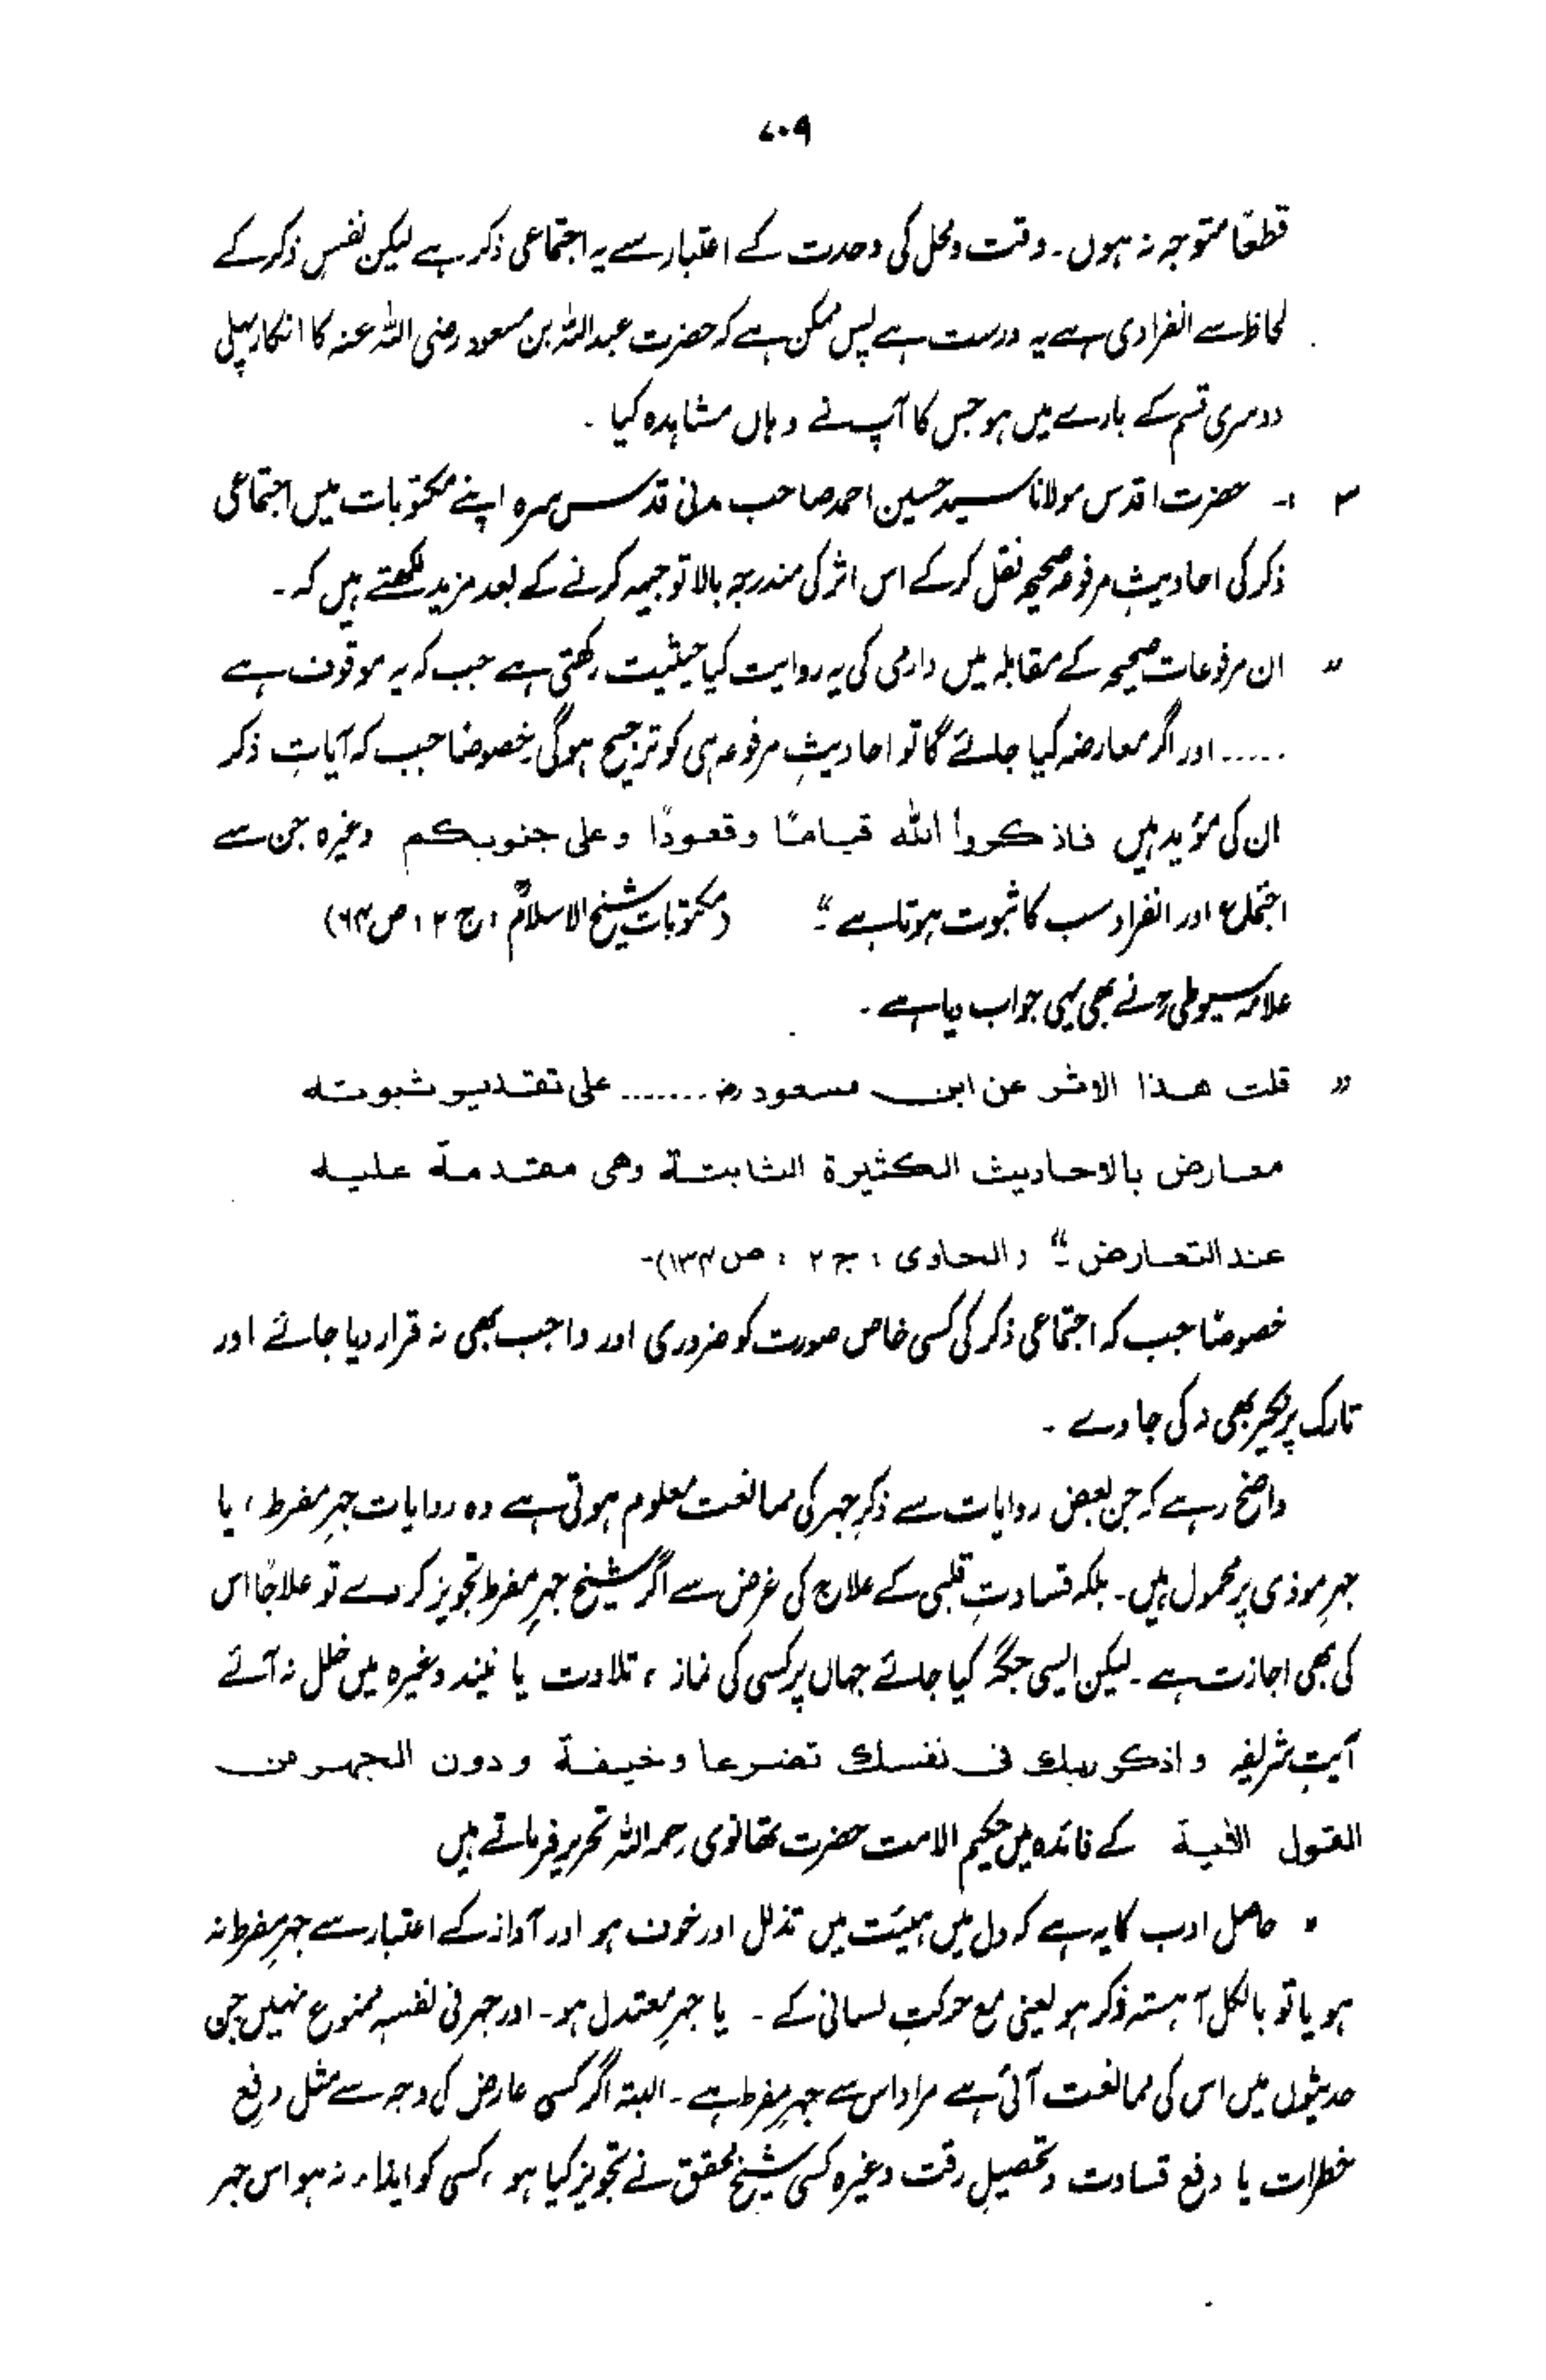 ۷۰۹
قطعًا متوجہ نہ ہوں۔ وقت ومحل کی وحدت کے اعتبار سے یہ اجتماعی ذکر ہے لیکن نفسِ ذکر کے
لحاظ سے انفرادی ہے یہ درست ہے پس ممکن ہے کہ حضرت عبداللہ بن مسعود رضی اللہ عنہ کا انکار پہلی
دوسری قسم کے بارے میں ہو جس کا آپ نے وہاں مشاہدہ کیا ۔
۳ :۔ حضرت اقدس مولانا سید حسین احمد صاحب مدنی قدس سرہ اپنے مکتوبات میں اجتماعی
ذکر کی احادیثِ مرفوعہ صحیحہ نقل کرکے اس اثر کی مندرجہ بالا توجیہہ کرنے کے بعد مزید لکھتے ہیں کہ ۔
” ان مرفوعات صحیحہ کے مقابلہ میں دارمی کی یہ روایت کیا حیثیت رکھتی ہے جب کہ یہ موقوف ہے
..... اور اگر معارضہ کیا جائے گا تو احادیثِ مرفوعہ ہی کو ترجیح ہوگی خصوصًا جب کہ آیاتِ ذکر
ان کی مؤید ہیں فاذكروا الله قياما وقعودًا وعلى جنوبكم وغیرہ جن سے
اجتماع اور انفراد سب کا ثبوت ہوتا ہے ۔“ (مکتوبات شیخ الاسلامؒ ، ج ۲ ، ص ۶۴)
علامہ سیوطی رح نے بھی یہی جواب دیا ہے ۔
” قلت هذا الاثر عن ابن مسعود رض ....... على تقدير ثبوته
معارض بالاحاديث الكثيرة الثابتة وهى مقدمة عليه
عند التعارض ۔“ (الحاوى ، ج ۲ ، ص ۱۳۴)۔
خصوصًا جب کہ اجتماعی ذکر کی کسی خاص صورت کو ضروری اور واجب بھی نہ قرار دیا جائے اور
تارک پر نکیر بھی نہ کی جاوے ۔
واضح رہے کہ جن بعض روایات سے ذکرِ جہر کی ممانعت معلوم ہوتی ہے وہ روایات جہرِ مفرط ، یا
جہرِ موذی پر محمول ہیں۔ بلکہ قساوتِ قلبی کے علاج کی غرض سے اگر شیخ جہرِ مفرط تجویز کردے تو علاجًا اس
کی بھی اجازت ہے ۔ لیکن ایسی جگہ کیا جائے جہاں پر کسی کی نماز ، تلاوت یا نیند وغیرہ میں خلل نہ آئے
آیتِ شریفہ واذكر ربك فى نفسك تضرعا وخيفة ودون الجهر من
القول الآية کے فائدہ میں حکیم الامت حضرت تھانوی رحمہ اللہ تحریر فرماتے ہیں
” حاصل ادب کا یہ ہے کہ دل میں ہیئت میں تذلل اور خوف ہو اور آواز کے اعتبار سے جہرِ مفرط نہ
ہو یا تو بالکل آہستہ ذکر ہو یعنی مع حرکتِ لسانی کے ۔ یا جہرِ معتدل ہو۔ اور جہر فی نفسہٖ ممنوع نہیں جن
حدیثوں میں اس کی ممانعت آئی ہے مراد اس سے جہرِ مفرط ہے ۔ البتہ اگر کسی عارض کی وجہ سے مثل دفع
خطرات یا دفع قساوت وتحصیلِ رقت وغیرہ کسی شیخ محقق نے تجویز کیا ہو ، کسی کو ایذاء نہ ہو اس جہر